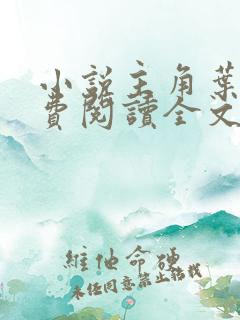 小說主角葉
費閱讀全文
維他命硬
未經同意禁止轉載